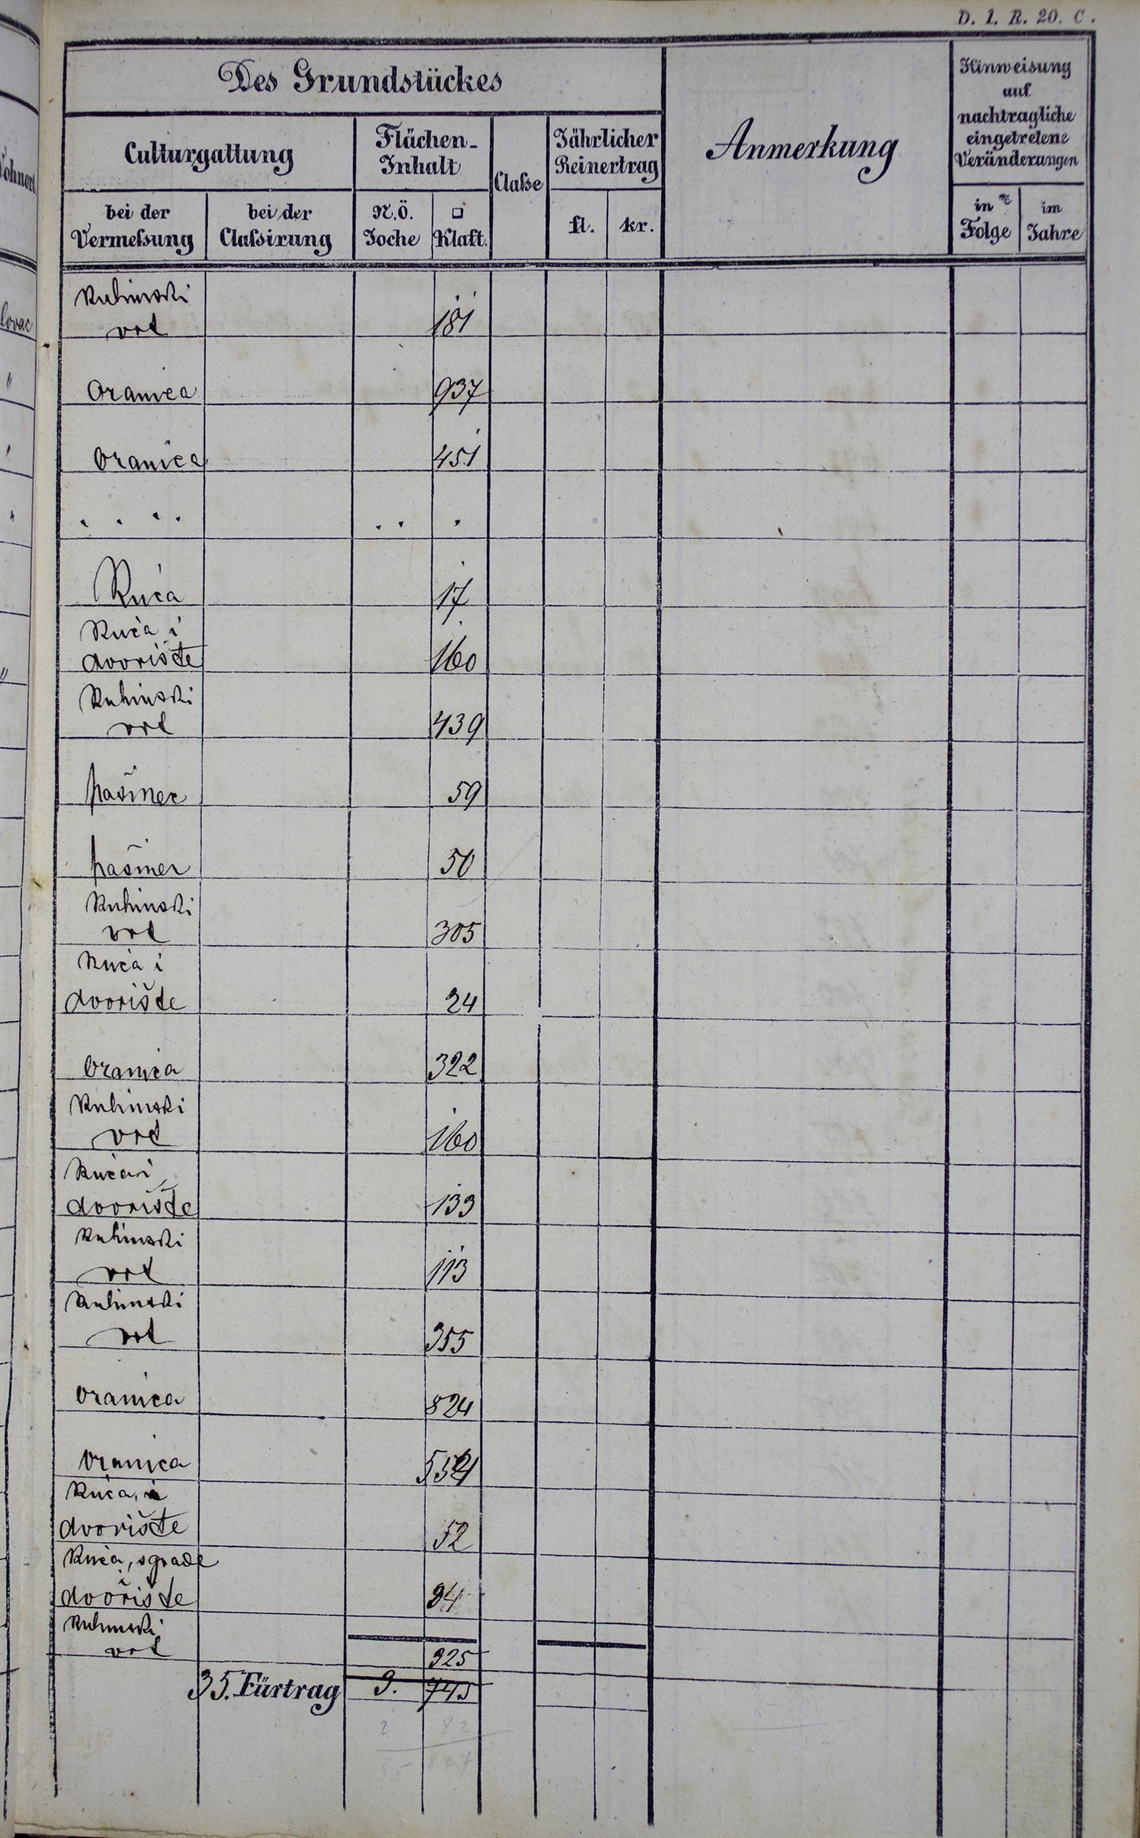 D. 1. R. 20. C.
Des Grundstückes
Anmerkung
Hinweisung
auf
nachtragliche
eingetretene
Veränderungen
Culturgattung
Flächen-
Inhalt
Claſse
Jährlicher
Reinertrag
bei der
Vermeſsung
bei der
Claſsirung
N.Ö.
Joche
□
Klaft.
fl.
kr.
in
Folge
im
Jahre
Kuhinski
vrt 181
Oranica 937
Oranica 451
" " " " " " "
Kuća 17
Kuća i
dvorište 160
Kuhinski
vrt 439
pašnec 59
pašnec 50
Kuhinski
vrt 305
Kuća i
dvorište 24
Oranica 322
Kuhinski
vrt 160
Kuća i
dvorište 133
Kuhinski
vrt 113
Kuhinski
vrt 355
Oranica 824
Oranica
Kuća i
dvorište 52
Kuća, sgrade
i
dvorište 94
Kuhinski
vrt 325
35. Fürtrag 3. 745